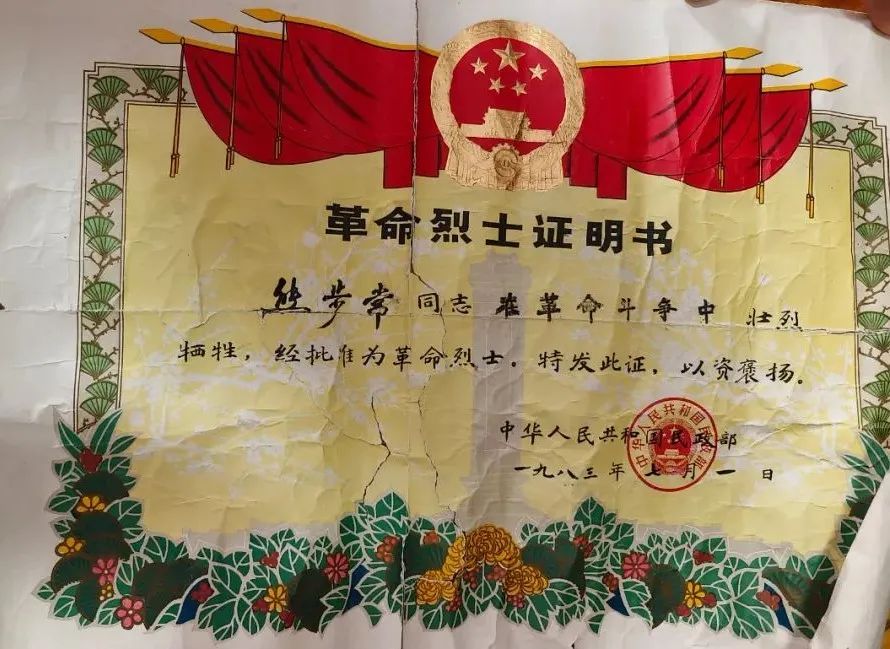 革命烈士证明书
熊步常同志在革命斗争中壮烈
牺牲，经批准为革命烈士。特发此证，以资褒扬。
中华人民共和国民政部
一九八三年七月一日
中华人民共和国民政部